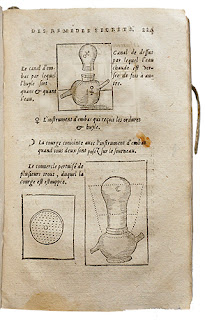 DES REMEDES SECRETS.
Le canal d'em-
bas par lequel
l'huyle sort
quant & quant
l'eau.
Canal de dessus
par lequel l'eau
chaude est ver-
sée de fois à au-
tre.
♀ L'instrument d'embas qui reçoit les ordures
& huyle.
☽ La courge conjointe avec l'instrument d'embas
quand tous deux sont posez sur le fourneau.
Le couvercle pertuisé de
plusieurs trous, duquel la
courge est estouppée.